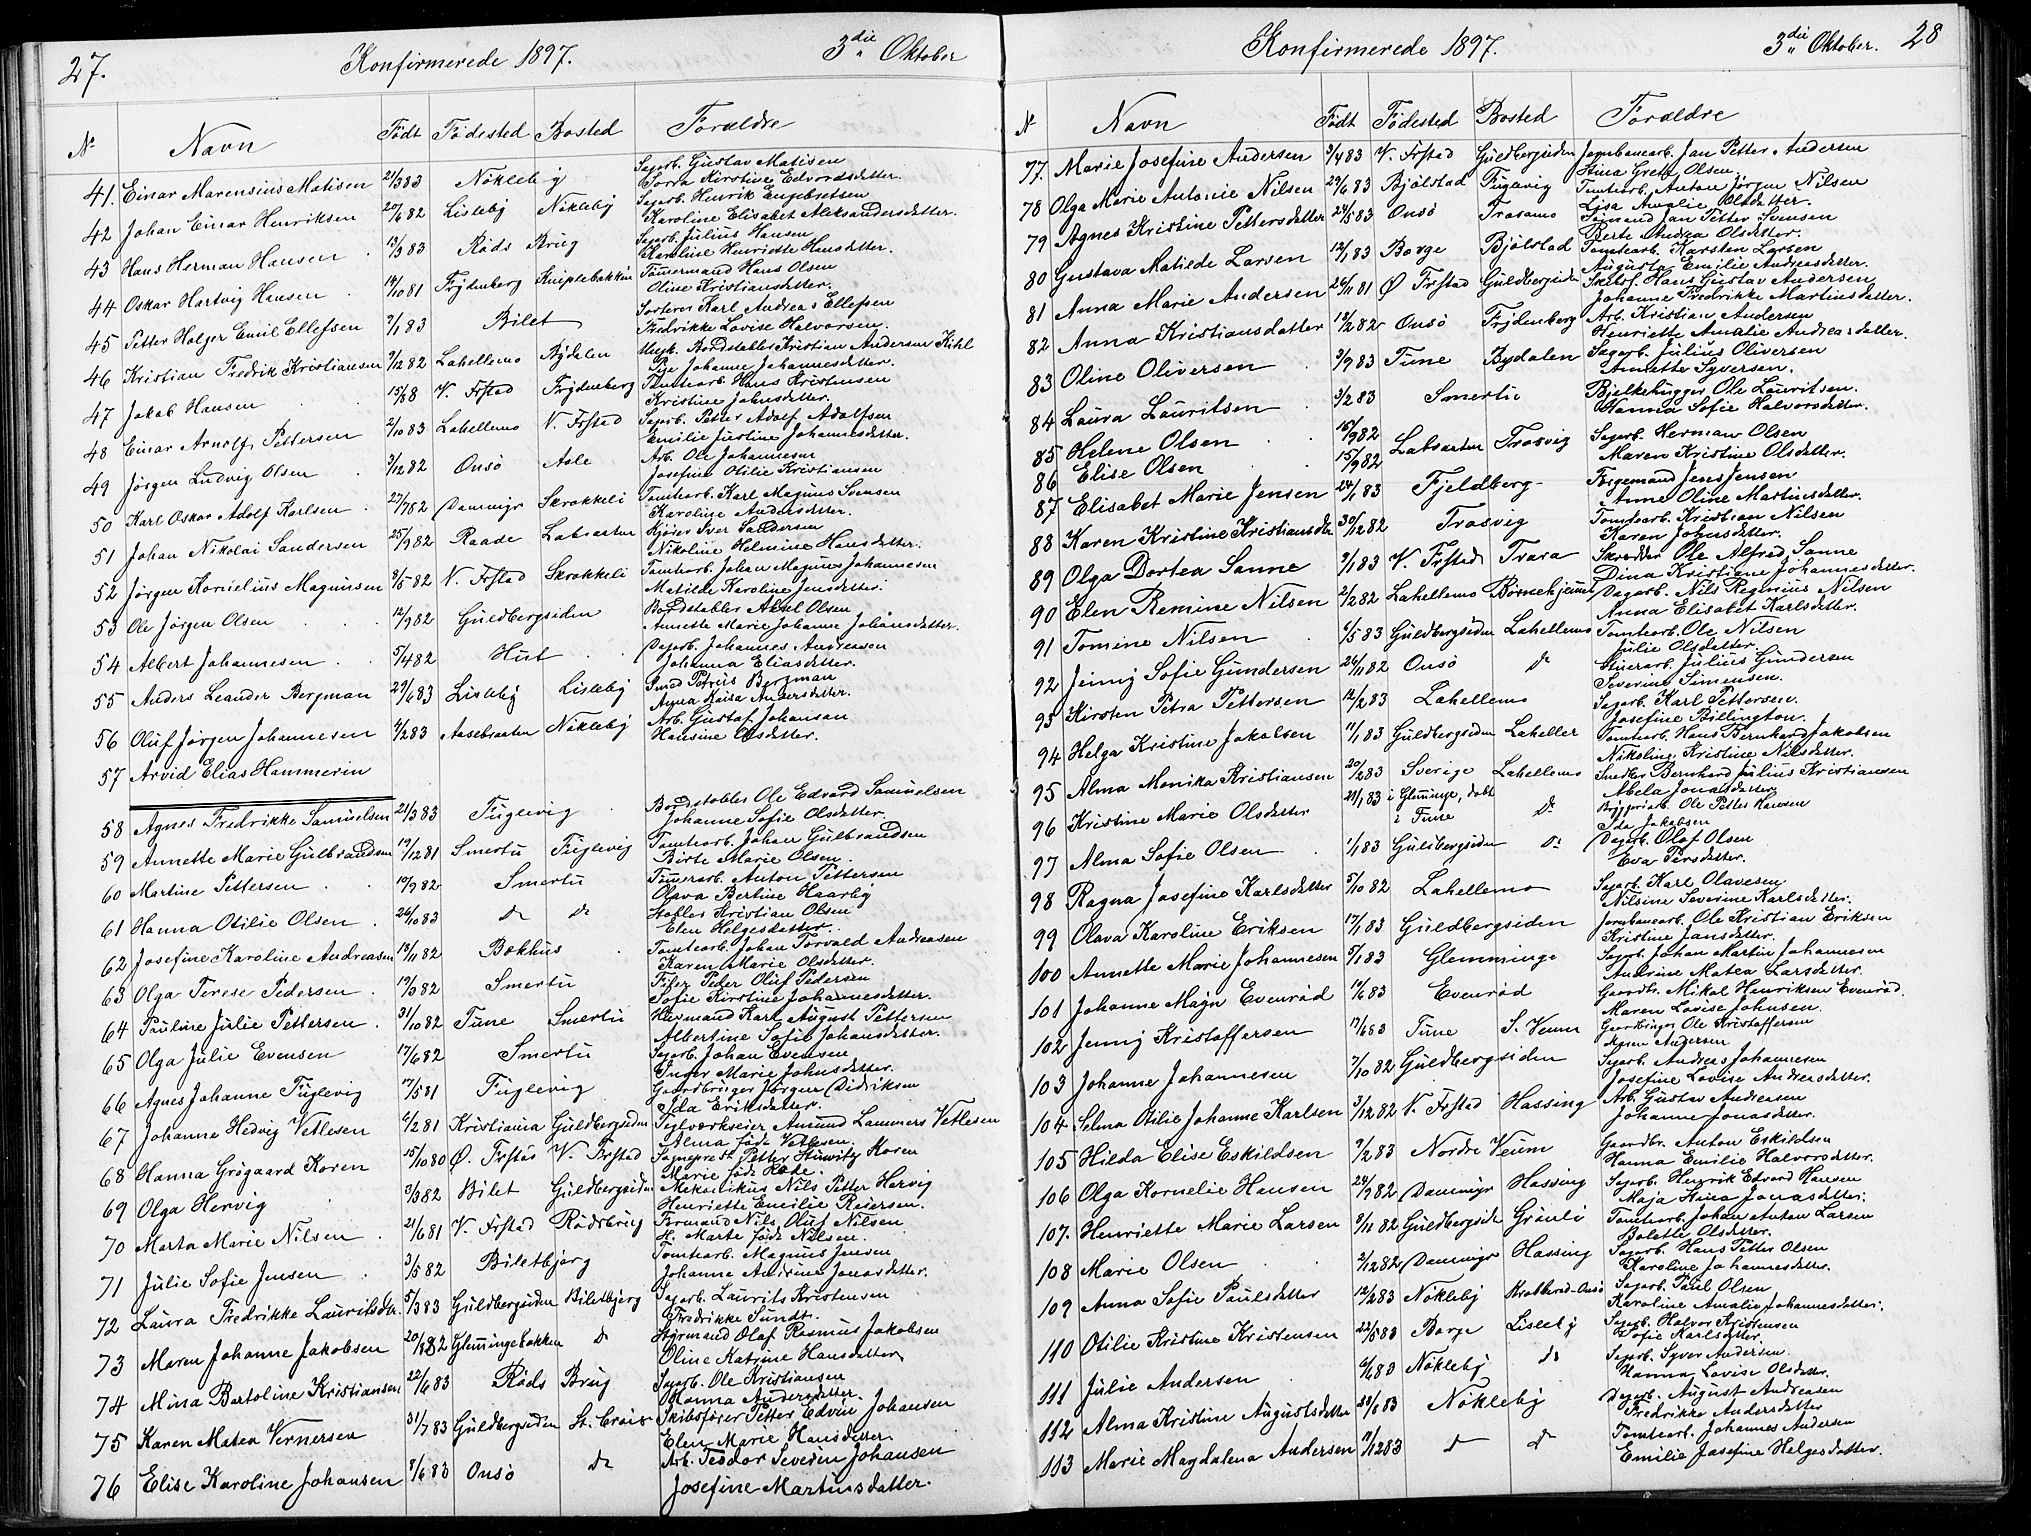 27.
Konfirmerede 1897.
3die Oktober
No Navn Født Fødested Bosted Forældre
41. Einar Marensius Matisen 21/3 83 Nøkleby Sagarb. Gustav Matisen
Kirstine Edvardsdatter.
42 Johan Einar Henriksen 20/6 82 Lisleby Nøkleby Sagarb. Henrik Engebretsen
Karoline Elisabet Aleksandersdatter.
43 Hans Herman Hansen 13/3 83 Røds Brug Sagarb. Julius Hansen
Karoline Henriette Hansdatter.
44 Oskar Hartvig Hansen 14/10 81 Frydenberg Kniplebakken Tømmermand Hans Olsen
Oline Kristiansdatter.
45 Petter Holger Emil Ellefsen 9/1 83 Bilet Sorterer Karl Andreas Ellefsen
Fredrikke Lovise Halvorsen.
46 Kristian Fredrik Kristiansen 9/12 82 Lahellemo Bydalen Bordstabler Kristian Andersen Kihl
Pige Johanne Johannesdatter.
47 Jakob Hansen V. Frstad Frydenberg Tomtearb. Hans Kristensen
Kristine Johnsdatter.
48 Einar Arnolf Pettersen 2/10 83 Lahellemo V. Frstad Sagarb. Petter Adolf Adolfsen
Emilie Justine Johannesdatter.
49 Jørgen Ludvig Olsen 3/12 82 Onsø Aale Arb. Ole Johannesen
Josefine Otilie Kristiansen
50 Karl Oskar Adolf Karlsen 27/7 82 Dammyr Skrokkeli Tomtearb. Karl Magnus Svensen
Karoline Andersdatter.
51 Johan Nikolai Sandersen 25/9 82 Raade Labraaten Kjører Iver Sandersen
Nikoline Helmine Hansdatter.
52 Jørgen Kornelius Magnusen 8/5 82 V. Frstad Skrokkeli Tomtearb. Johan Magnus Johannesen
Matilde Karoline Jensdatter.
53 Ole Jørgen Olsen 12/9 82 Guldbergsiden Bordstabler Aksel Olsen
Annette Marie Johanne Johansdatter.
54 Albert Johannesen 5/4 82 Hut Dagarb. Johannes Andreasen
Johanna Eliasdatter.
55 Anders Leander Bergman 29/6 83 Lisleby Lisleby Smed Petrus Bergman
Anna Kaisa Andersdatter.
56 Oluf Jørgen Johannesen 4/2 83 Aasebraaten Nøkleby Arb. Gustaf Johansan
Hansine Olsdatter.
57 Arvid Elias Hammerin
58 Agnes Fredrikke Samuelsen 21/3 83 Fuglevig Bordstabler Ole Edvard Samuelsen
Johanne Sofie Olsdatter.
59 Annette Marie Gulbrandsen 19/12 81 Smertu Fuglevig Tomtearb. Johan Gulbrandsen
Birte Marie Olsen.
60 Martine Pettersen 10/9 82 Smertu Tømmerarb. Anton Pettersen
Olava Berline Haarby
61 Hanna Otilie Olsen 26/10 83 do do Stabler Kristian Olsen
Elen Helgesdatter.
62 Josefine Karoline Andreasen 13/11 82 Bækhus Tomtearb. Johan Torvald Andreasen
Karen Marie Olsdatter.
63 Olga Terese Pedersen Smertu Fifer Peder Oluf Pedersen
Sofie Kirstine Johannesdatter.
64 Pauline Julie Pettersen 31/10 82 Tune Smertu Karl August Pettersen
Albertine Sofie Johansdatter.
65 Olga Julie Evensen 17/6 82 Smertu Sagarb. Johan Evensen
Inger Marie Johnsdatter.
66 Agnes Johanne Fuglevig 17/5 81 Fuglevig Gaardbruger Jørgen Didriksen
Ida Eriksdatter.
67 Johanne Hedvig Vetlesen 6/2 81 Kristiania Guldbergsiden Teglværkseier Amund Lammers Vetlesen
Alma født Vetlesen.
68 Hanna Grøgaard Koren 15/10 80 Ø. Frstad V. Frstad Sognepræst Petter Huwitz Koren
Marie født Rode.
69 Olga Hervig 3/3 82 Bilet Guldbergsiden Mekanikus Nils Petter Hervig
Henriette Emilie Reiersen.
70 Marta Marie Nilsen 21/6 81 V. Frstad Rødsbrug Formand Nils Oluf Nilsen
H. Marte født Nilsen.
71 Julie Sofie Jensen 3/5 82 Biletbjerg Tomtearb. Magnus Jensen
Johanne Andrine Jonasdatter.
72 Laura Fredrikke Lauritsdtr. 5/3 83 Guldbergsiden Biletbjerg Sagarb. Laurits Kristensen
Fredrikke Sundt.
73 Maren Johanne Jakobsen Glemmingebakken do Styrmand Olaf Rasmus Jakobsen
Oline Katrine Hansdatter
74 Mina Bartoline Kristiansen 22/6 83 Røds Brug Sagarb. Ole Kristiansen
Hanna Andersdatter.
75 Karen Matea Vernersen 31/7 83 Guldbergsiden St. Croix Skibsfører Petter Edvin Johansen
Elen Marie Hansdatter.
76 Elise Karoline Johansen 8/6 83 Onsø do Arb. Teodor Severin Johansen
Josefine Martinsdatter.
Konfirmerede 1897.
3die Oktober. 28
No Navn Født Fødested Bosted Forældre
77. Marie Josefine Andersen 3/4 83 V. Frstad Guldbergsiden Jernbanearb. Jan Petter Andersen
Stina Greta Olsen.
78 Olga Marie Antonie Nilsen 29/6 83 Bjølstad Fugavig Tomtearb. Anton Jørgen Nilsen
Lisa Amalie Olsdatter.
79 Agnes Kristine Pettersdatter 24/5 83 Onsø Trosamo Sømand Jan Petter Svensen
Berte Andrea Olsdatter.
80 Gustava Matilde Larsen 12/1 83 Borge Bjølstad Tomtearb. Karsten Larsen
Augusta Emilie Andreasdatter.
81 Anna Marie Andersen 26/11 81 Ø Frstad Guldbergsiden Skibsf. Hans Gustav Andersen
Johanne Fredrikke Martinsdatter.
82 Anna Kristiansdatter 18/2 82 Onsø Frydenberg Arb. Kristian Andersen
Henriette Amalie Andreasdatter.
83 Oline Oliversen 3/9 83 Tune Bydalen Sagarb. Julius Oliversen
Annette Syversen.
84 Laura Lauritsen 3/2 83 Smertu Bjelkehugger Ole Lauritsen.
Hanna Sofie Halvorsdatter.
85 Helene Olsen 15/9 82 Labraaten Trosvig Sagarb. Herman Olsen
86 Elise Olsen 15/9 82 Maren Kristine Olsdatter.
87 Elisabet Marie Jensen 24/1 83 Fjeldberg Færgemand Jens Jensen
Anne Oline Martinsdatter.
88 Karen Kristine Kristiansdtr. 30/12 82 Trosvig Tomtearb. Kristian Nilsen
Karen Johnsdatter.
89 Olga Dortea Sanne 9/1 83 V. Frstad Trara Skrædder Ole Alfred Sanne
Dina Kristiane Johannesdatter.
90 Elen Remine Nilsen 2/2 82 Lahellemo Børnehjemmet Dagarb. Nils Reginius Nilsen
Anna Elisabet Karlsdatter.
91 Tomine Nilsen 6/5 83 Guldbergsiden Lahellemo Tomtearb. Ole Nilsen
Julie Olsdatter.
92 Jenny Sofie Gundersen 26/11 82 Onsø do Stuerarb. Julius Gundersen
Severine Simensen.
93 Kirsten Petra Pettersen 12/2 83 Lahellemo Sagarb. Karl Pettersen.
Josefine Billington.
94 Helga Kristine Jakobsen 11/1 83 Guldbergsiden Laheller Tomtearb. Hans Bernhard Jakobsen
Nikoline Kristine Nilsdatter.
95 Alma Monika Kristiansen 20/2 83 Sverige Lahellemo Snedker Bernhard Julius Kristiansen
Abela Jonasdatter
96 Kristine Marie Olsdatter 21/1 83 i Glemminge, døbt i Tune do Bryggeriarb. Ole Petter Hansen
Ida Jakobsen
97 Alma Sofie Olsen 1/1 83 Guldbergsiden do Dagarb. Olaf Olsen
Eva Persdatter.
98 Ragna Josefine Karlsdatter 5/10 82 Lahellemo Sagarb. Karl Olavesen
Nilsine Severine Karlsdatter.
99 Olava Karoline Eriksen 17/1 83 Guldbergsiden Jernbanearb. Ole Kristian Eriksen
Kristine Jansdatter.
100 Annette Marie Johannesen 5/1 83 Glemminge Sagarb. Johan Martin Johannesen
Andrine Matea Larsdatter.
101 Johanne Majn Evenrød 11/6 83 Evenrød Gaardbr. Mikal Henriksen Evenrød.
Maren Lovise Johnsen.
102 Jenny Kristoffersen 17/6 83 Tune S. Veum Gaardbruger Ole Kristoffersen
Andersen
103 Johanne Johannesen 7/10 82 Guldbergsiden Sagarb. Andreas Johannesen
Josefine Lovise Andreasdatter.
104 Selma Otilie Johanne Karlsen 3/12 82 V. Frstad Hassing Arb. Gustav Andreasen
Johanne Jonasdatter.
105 Hilda Elise Eskildsen 9/2 83 Nordre Veum Gaardbr. Anton Eskildsen
Hanna Emilie Halvorsdatter.
106 Olga Kornelie Hansen 24/9 82 Dammyr Hassing Sagarb. Henrik Edvard Hansen
Maja Stina Jonasdatter.
107. Henriette Marie Larsen 8/11 82 Guldbergside Grønli Tomtearb. Johan Anton Larsen
Bolette Olsdatter.
108 Marie Olsen 2/12 82 Dammyr Hassing Sagarb. Hans Petter Olsen
Karoline Johannesdatter.
109 Anna Sofie Paulsdatter 12/2 83 Nøkleby Sagarb. Paul Olsen
Karoline Amalie Johannesdatter.
110 Otilie Kristine Kristensen 22/5 83 Borge Lisleby Sagarb. Halvor Kristensen
Sofie Karlsdatter.
111 Julie Andersen Nøkleby do Sagarb. Syver Andersen.
Hanna Lovise Olsdatter.
112 Alma Kristine Augustsdatter Nøkleby Dagarb. August Andreasen
Fredrikke Andersdatter
113 Marie Magdalena Andersen do do Tomtearb. Johannes Andersen
Emilie Josefine Helgesdatter.